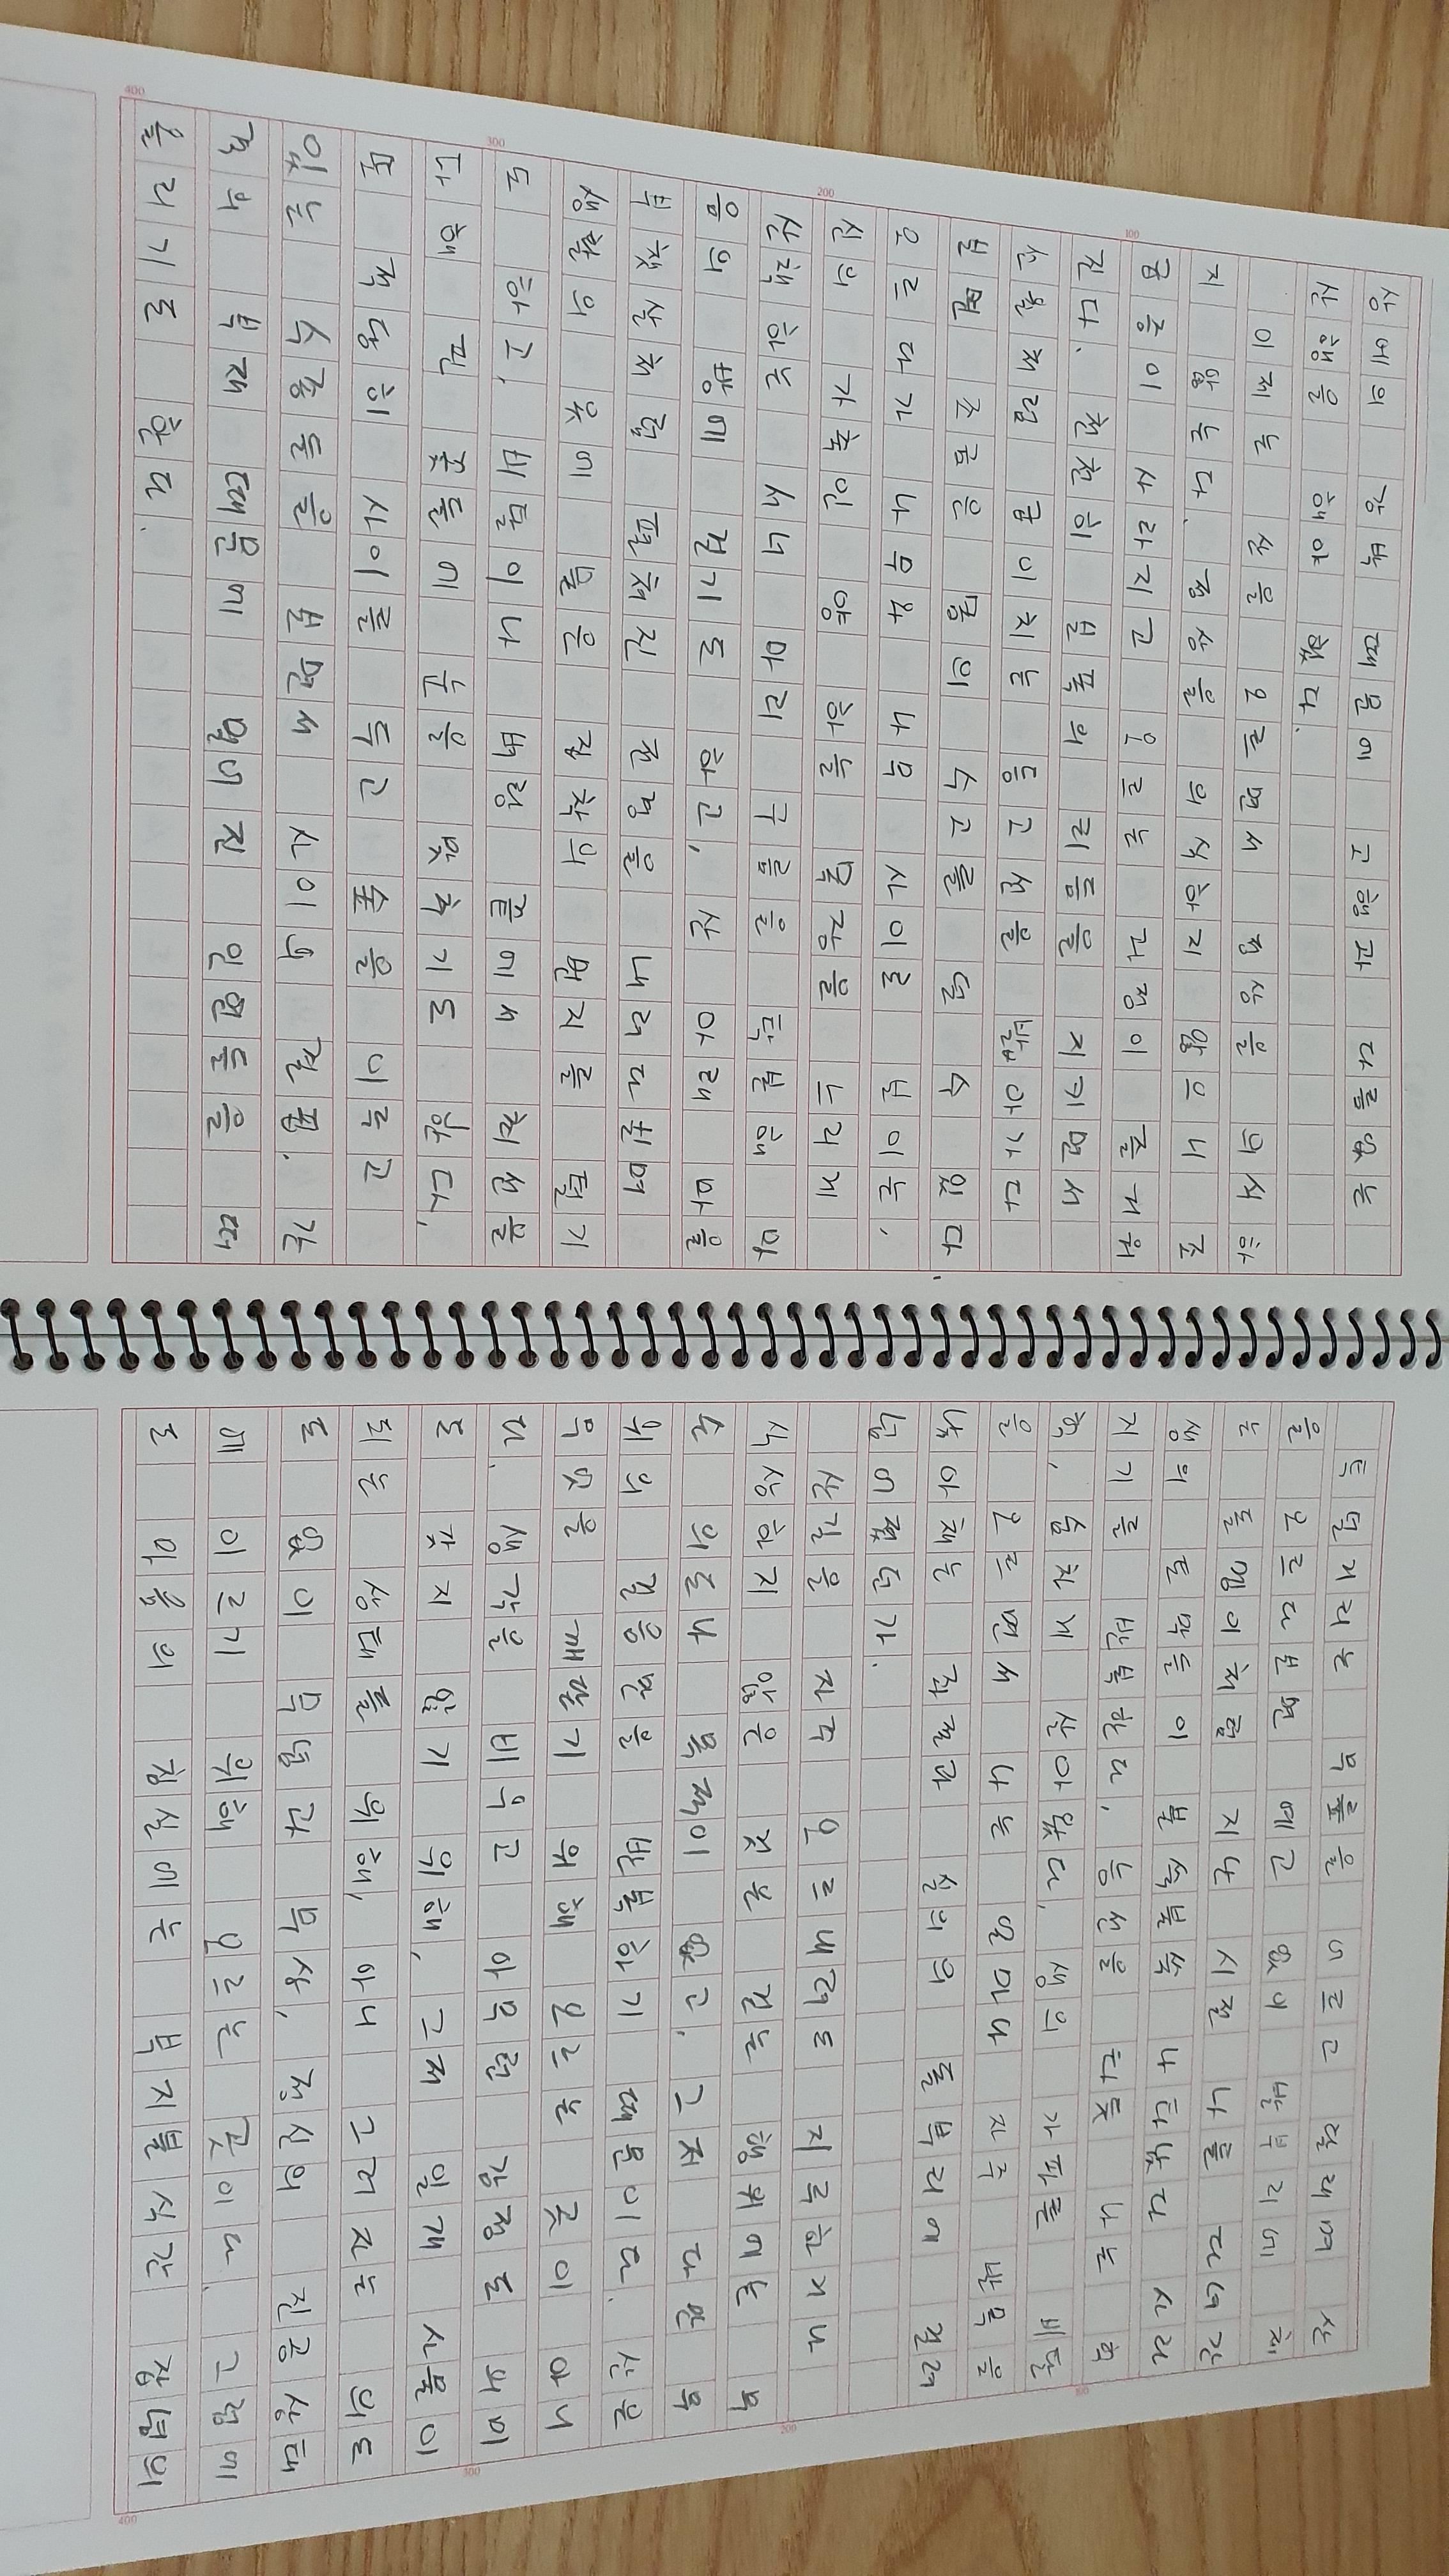 상에의 강박 때문에 고행과 다름없는
산행을 해야 했다.
이제는 산을 오르면서 정상을 의식하
지 않는다. 정상을 의식하지 않으니 조
급증이 사라지고 오르는 과정이 즐거워
진다. 천천히 보폭의 리듬을 지키면서
선율처럼 굽이치는 등고선을 밟아가다
보면 조금은 몸의 수고를 덜 수 있다
오르다가 나무와 나무 사이로 보이는,
신의 가축인 양 하늘 목장을 느리게
산책하는 서너 마리 구름을 탁본해 마
음의 방에 걸기도 하고, 산 아래 마을
부챗살처럼 펼쳐진 전경을 내려다보며
생활의 옷에 묻은 집착의 먼지를 털기
도 하고, 비탈이나 벼랑 끝에서 최선을
다해 핀 꽃들에 눈을 맞추기도 한다.
또 적당히 사이를 두고 숲을 이루고
있는 수종들을 보면서 사이의 결핍. 간
격의 부재 때문에 멀어진 인연들을 떠
올리기도 한다.
투덜거리는 무릎을 어르고 달래며 산
을 오르다보면 예고 없이 발부리에 채
는 돌멩이처럼 지난 시절 나를 다녀간
생의 토막들이 불쑥불쑥 나타났다 사라
지기를 반복한다. 능선을 타듯 나는 헉
헉, 숨차게 살아왔다. 생의 가파른 비탈
을 오르면서 나는 얼마나 자주 발목을
낚아채는 좌절과 실의의 돌부리에 걸려
넘어졌던가.
산길을 자주 오르내려도 지루하거나
식상하지 않은 것은 걷는 행위에는 무
슨 의도나 목적이 없고, 그저 다만 무
위의 걸음만을 반복하기 때문이다. 산은
무엇을 깨닫기 위해 오르는 곳이 아니
다. 생각을 비우고 아무런 감정도 의미
도 갖지 않기 위해, 그저 일개 사물이
되는 상태를 위해, 아니 그러자는 의도
도 없이 무념과 무상, 정신의 진공상태
에 이르기 위해 오르는 곳이다. 그럼에
도 마음의 침실에는 부지불식간 잡념의